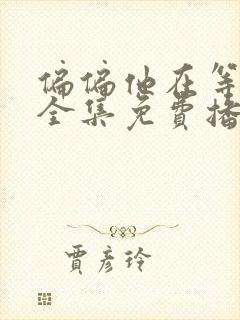 偏偏他在等
全集免費播
賈彥玲